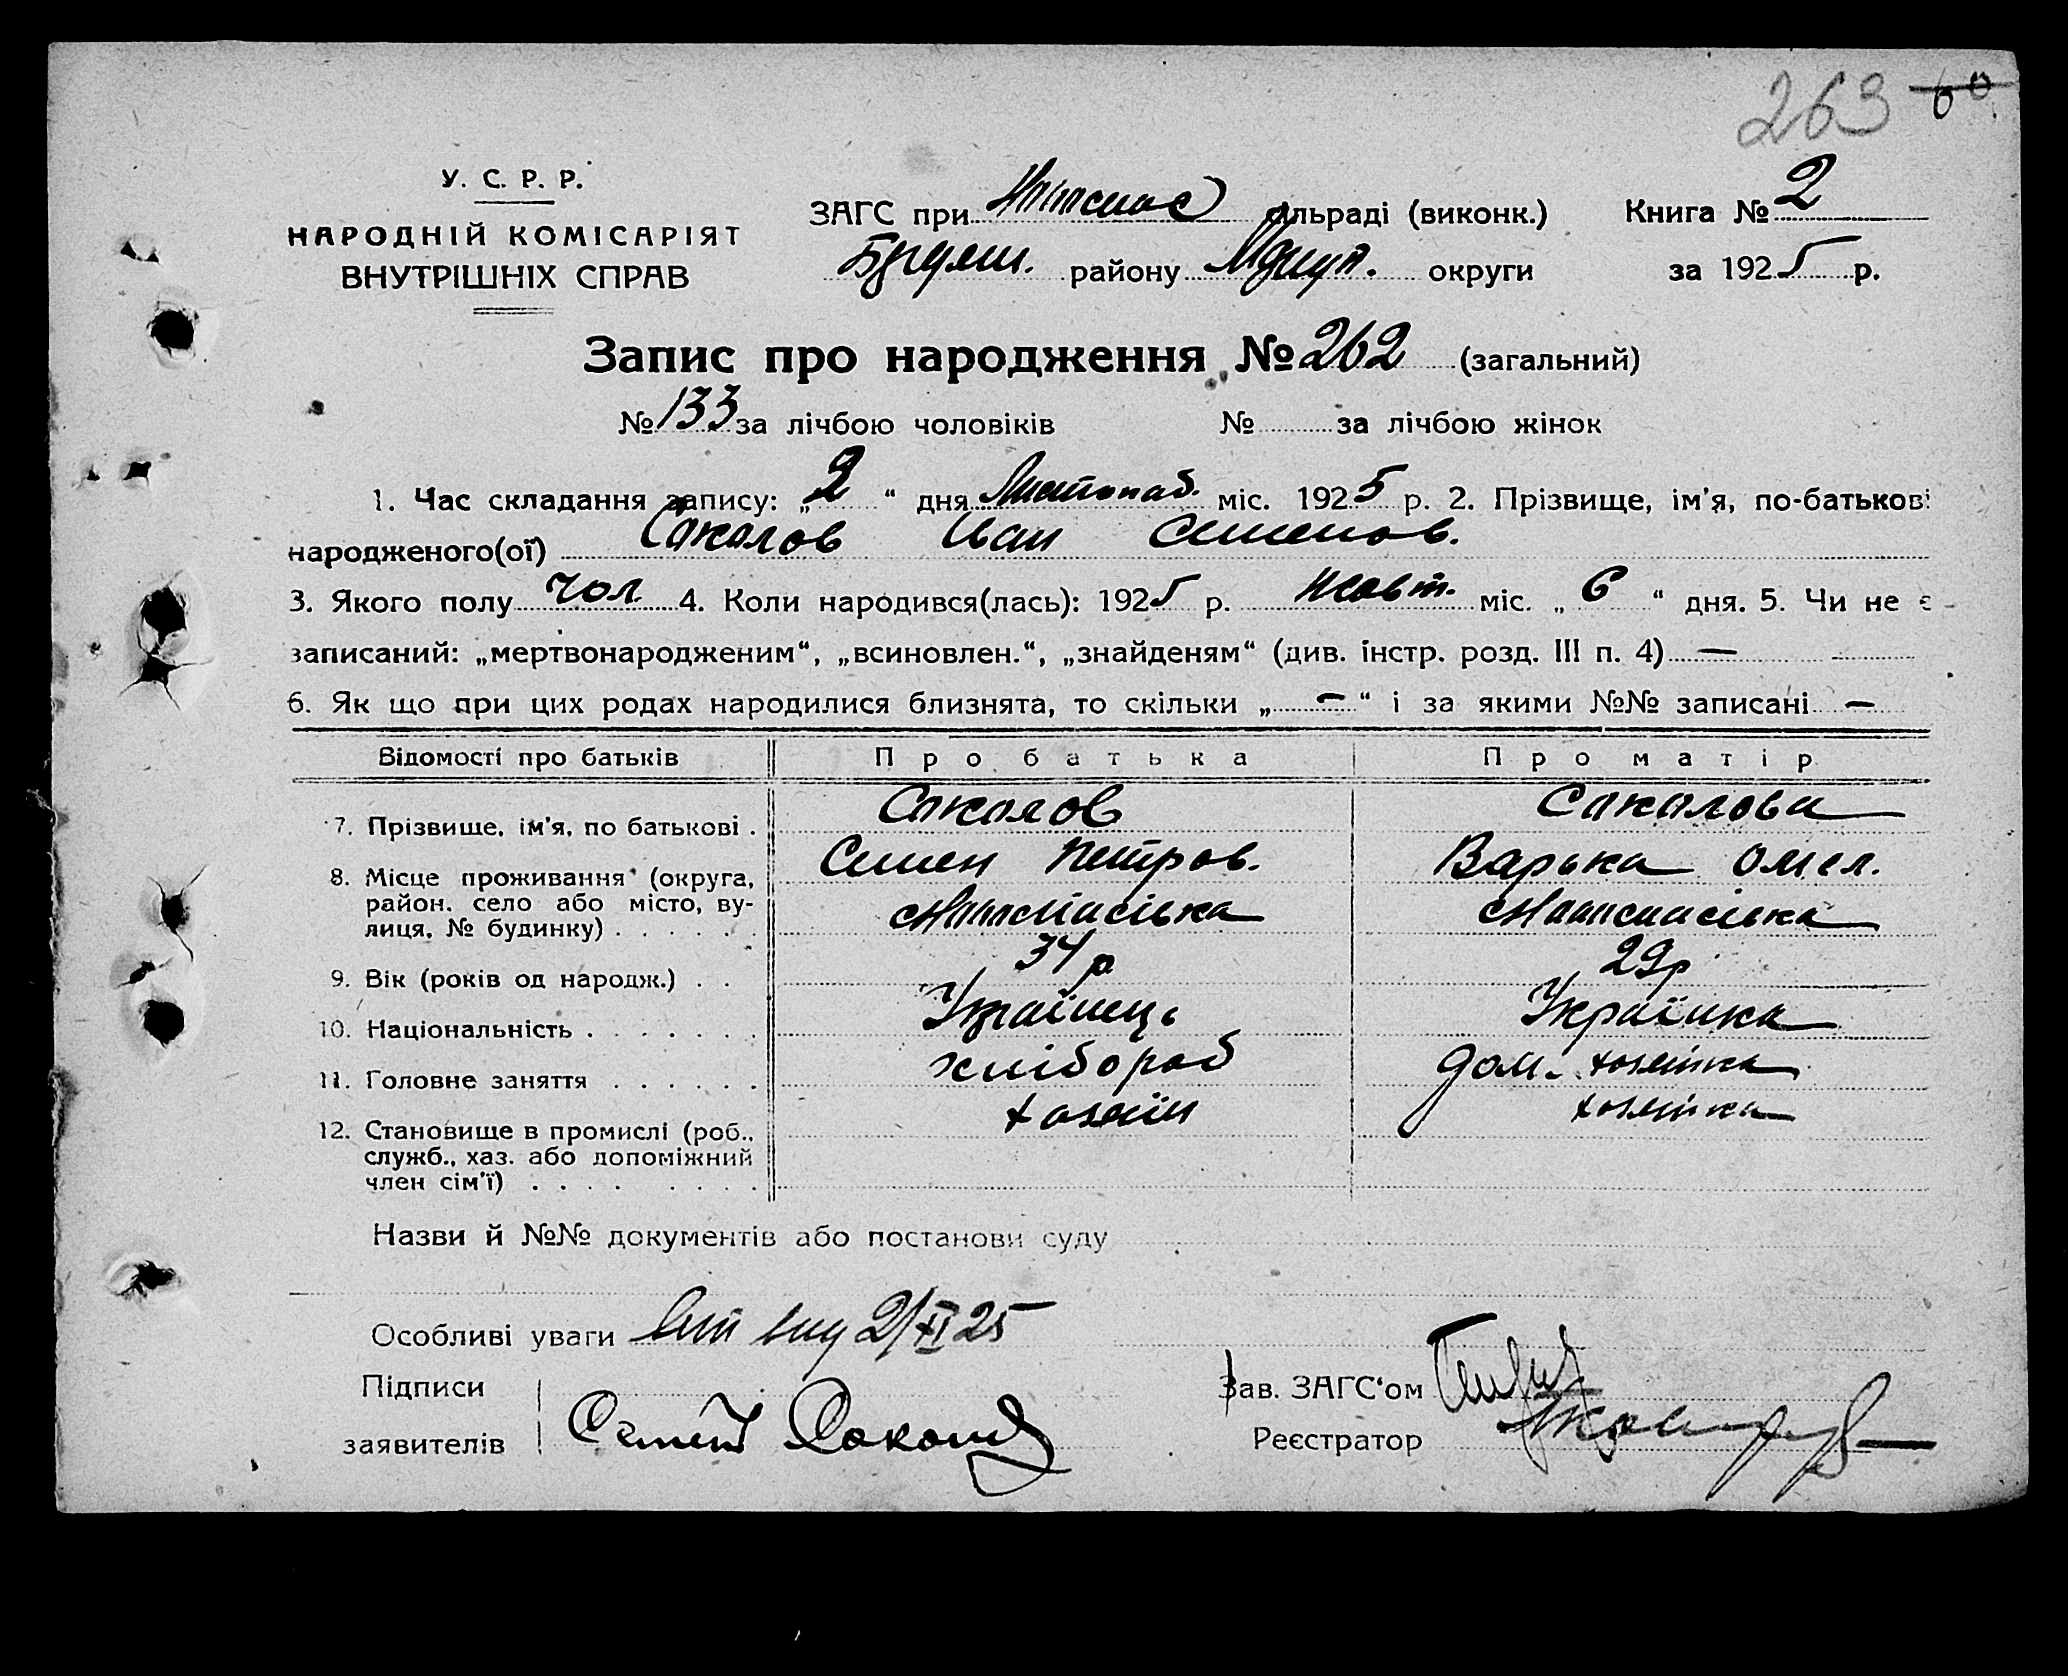 263 60
У. С. Р. Р.
НАРОДНІЙ КОМІСАРІЯТ
ВНУТРІШНІХ СПРАВ
ЗАГС при сільраді (виконк.) Книга № 2
району округи за 1925 р.
Запис про народження № 262 (загальний)
№ 133 за лічбою чоловіків № за лічбою жінок
1. Час складання запису: „2“ дня Листопад. міс. 1925 р. 2. Прізвище, ім'я, по-батькові
народженого(ої) Соколов Іван Семенов.
3. Якого полу чол 4. Коли народився(лась): 1925 р. Жовт. міс. „6“ дня. 5. Чи не є
записаний: „мертвонародженим“, „всиновлен.“, „знайденям“ (див. інстр. розд. III п. 4) —
6. Як що при цих родах народилися близнята, то скільки „—“ і за якими №№ записані —
Відомості про батьків Про батька Про матір
7. Прізвище, ім'я, по батькові . Соколов Соколова
Семен Петров. Варька Омел.
8. Місце проживання (округа,
район, село або місто, ву-
лиця, № будинку) . . . . . .
9. Вік (років од народж.) . . 34 р 29 р
10. Національність . . . . . . . Українець Українка
11. Головне заняття . . . . . . хлібороб дом. хозяйка
12. Становище в промислі (роб., хозяїн хозяйка
служб., хаз. або допоміжний
член сім'ї) . . . . . . . .
Назви й №№ документів або постанови суду
Особливі уваги 2/XI 25
Підписи
заявителів Семен Соколов
Зав. ЗАГС'ом
Реєстратор